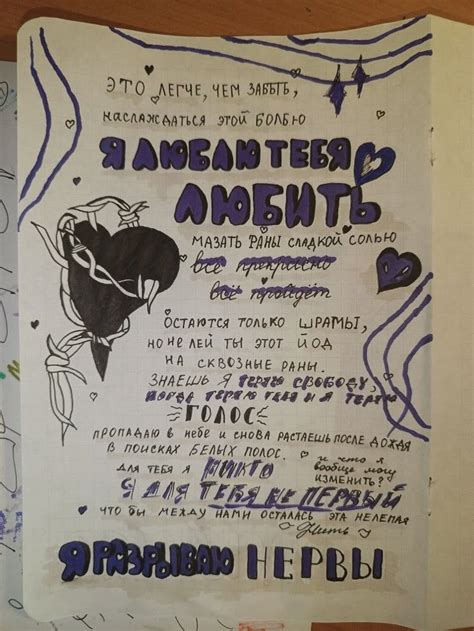 ЭТО ЛЕГЧЕ, ЧЕМ ЗАБЫТЬ,
НАСЛАЖДАТЬСЯ ЭТОЙ БОЛЬЮ
Я ЛЮБЛЮ ТЕБЯ
ЛЮБИТЬ
МАЗАТЬ РАНЫ СЛАДКОЙ СОЛЬЮ
всё прекрасно
всё пройдёт
ОСТАЮТСЯ ТОЛЬКО ШРАМЫ,
НО НЕ ЛЕЙ ТЫ ЭТОТ ЙОД
НА СКВОЗНЫЕ РАНЫ.
ЗНАЕШЬ Я ТЕРЯЮ СВОБОДУ,
КОГДА ТЕРЯЮ ТЕБЯ И Я ТЕРЯЮ
ГОЛОС
ПРОПАДАЮ В НЕБЕ И СНОВА РАСТАЕШЬ ПОСЛЕ ДОЖДЯ
В ПОИСКАХ БЕЛЫХ ПОЛОС.
ДЛЯ ТЕБЯ Я НИКТО
и что я вообще могу изменить?
Я ДЛЯ ТЕБЯ НЕ ПЕРВЫЙ
ЧТО БЫ МЕЖДУ НАМИ ОСТАЛАСЬ ЭТА НЕЛЕПАЯ
Нить
Я РАЗРЫВАЮ НЕРВЫ